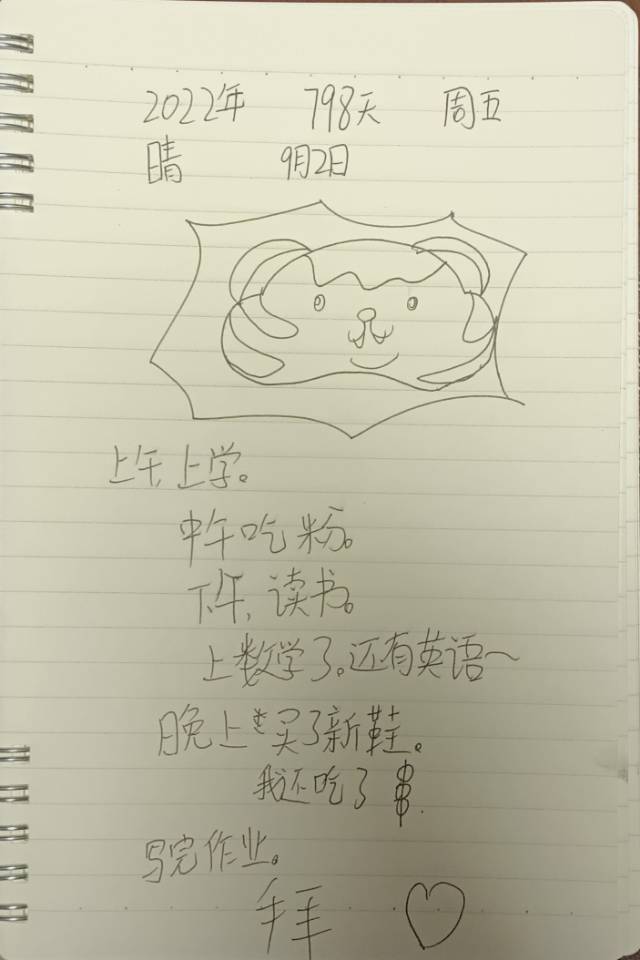 2022年 798天 周五
晴 9月2日
上午,上学。
中午吃粉。
下午,读书。
上数学了。还有英语~
晚上买了新鞋。
我还吃了串.
写完作业。
拜